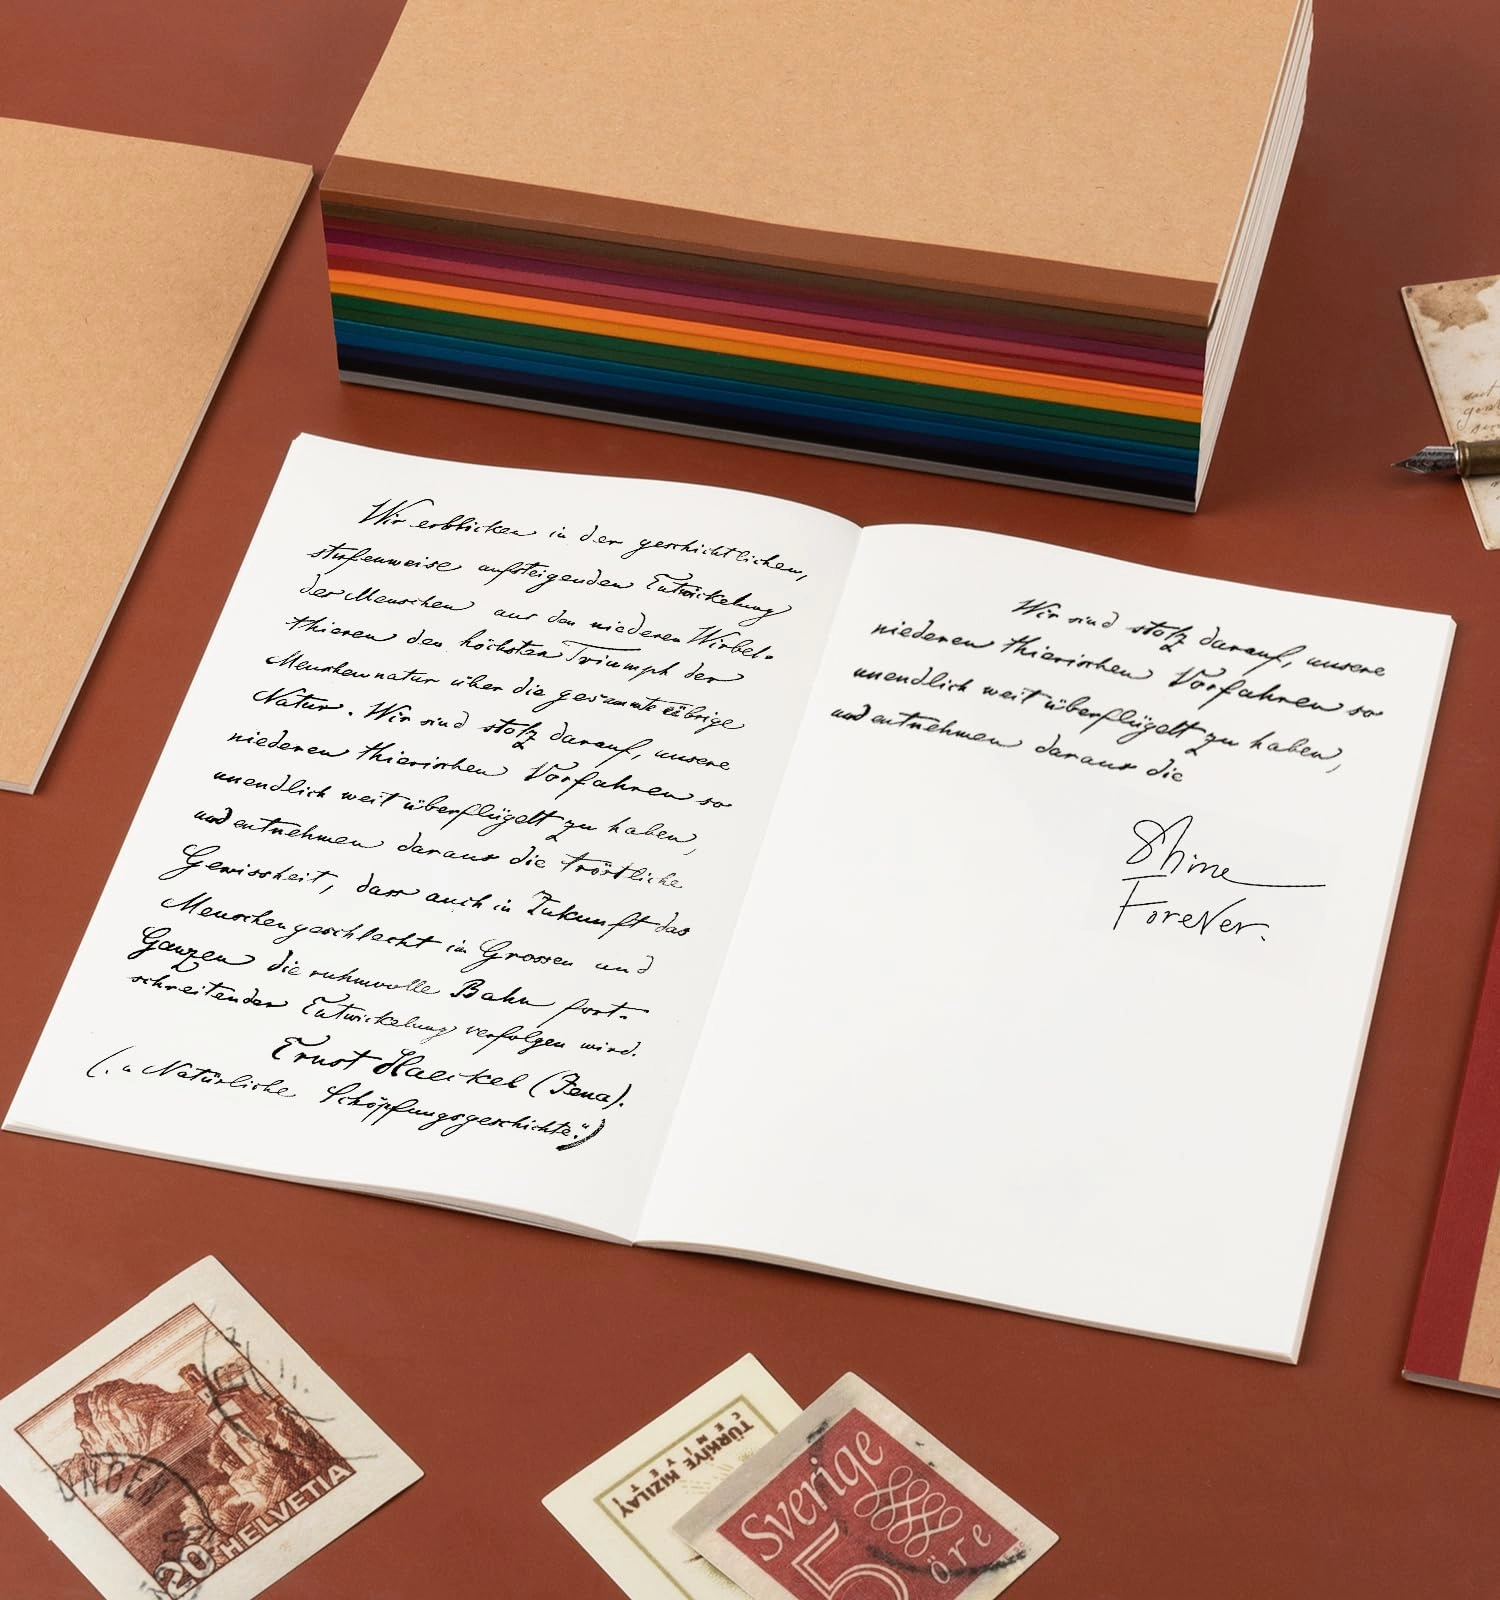 Wir erblicken in der geschichtlichen,
stufenweise aufsteigenden Entwickelung
der Menschen aus den niederen Wirbel-
thieren den höchsten Triumph der
Menschennatur über die gesammte übrige
Natur. Wir sind stolz darauf, unsere
niederen thierischen Vorfahren so
unendlich weit überflügelt zu haben,
und entnehmen daraus die tröstliche
Gewissheit, dass auch in Zukunft das
Menschengeschlecht im Grossen und
Ganzen die ruhmvolle Bahn fort-
schreitender Entwickelung verfolgen wird.
Ernst Haeckel (Jena).
(. „ Natürliche Schöpfungsgeschichte.")
Wir sind stolz darauf, unsere
niederen thierischen Vorfahren so
unendlich weit überflügelt zu haben,
und entnehmen daraus die
Shine
ForeVer.
UNGEN
20 HELVETIA
TÜRKİYE KIZILAY
CEMİYETİ
Sverige
5
öre